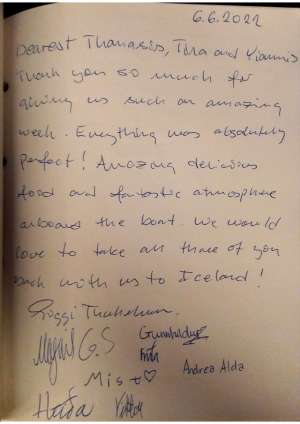 6.6.2022
Dearest Thanassis, Tina and Yiannis
Thank you so much for
giving us such an amazing
week. Everything was absolutely
perfect! Amazing delicious
food and fantastic atmosphere
onboard the boat. We would
love to take all three of you
back with us to Iceland!
Andrea Alda
Mist ♡